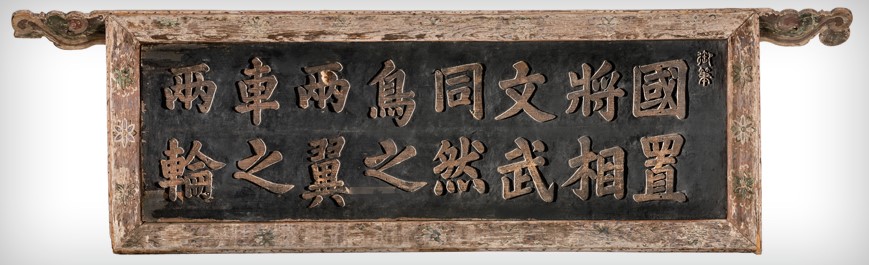 御筆
國置
將相
文武
同然
鳥之
兩翼
車之
兩輪